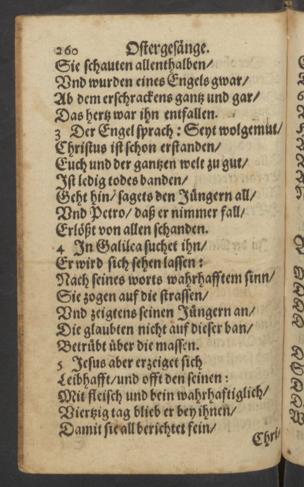 260 Ostergesänge.
Sie schauten allenthalben/
Vnd wurden eines Engels gwar/
Ab dem erschrackens gantz und gar/
Das hertz war ihn entfallen.
3 Der Engel sprach: Seyt wolgemut/
Christus ist schon erstanden/
Euch und der gantzen welt zu gut/
Ist ledig todes banden/
Geht hin/ sagets den Jüngern all/
Vnd Petro/ daß er nimmer fall/
Erlößt von allen schanden.
4 In Galilea suchet ihn/
Er wird sich sehen lassen:
Nach seines worts wahrhafftem sinn/
Sie zogen auf die strassen/
Vnd zeigtens seinen Jüngern an/
Die glaubten nicht auf dieser ban/
Betrübt über die massen.
5 Jesus aber erzeiget sich
Leibhafft/und offt den seinen:
Mit fleisch und bein wahrhaftiglich/
Viertzig tag blieb er bey ihnen/
Damit sie all berichtet sein/
Chri-